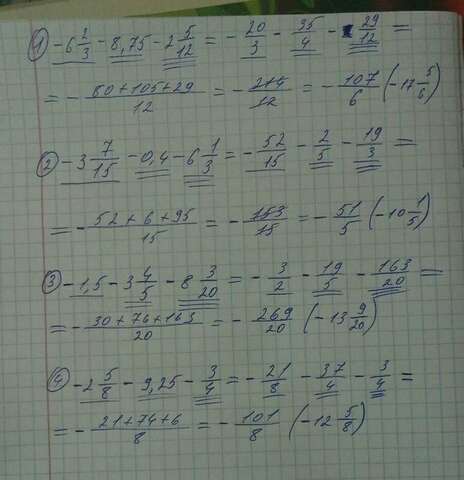 1) -6 2/3 - 8,75 - 2 5/12 = - 20/3 - 35/4 - 29/12 =
= - (80+105+29)/12 = - 214/12 = - 107/6 (-17 5/6)
2) -3 7/15 - 0,4 - 6 1/3 = - 52/15 - 2/5 - 19/3 =
= - (52+6+95)/15 = - 153/15 = - 51/5 (-10 1/5)
3) -1,5 - 3 4/5 - 8 3/20 = - 3/2 - 19/5 - 163/20 =
= - (30+76+163)/20 = - 269/20 (-13 9/20)
4) -2 5/8 - 9,25 - 3/4 = - 21/8 - 37/4 - 3/4 =
= - (21+74+6)/8 = - 101/8 (-12 5/8)